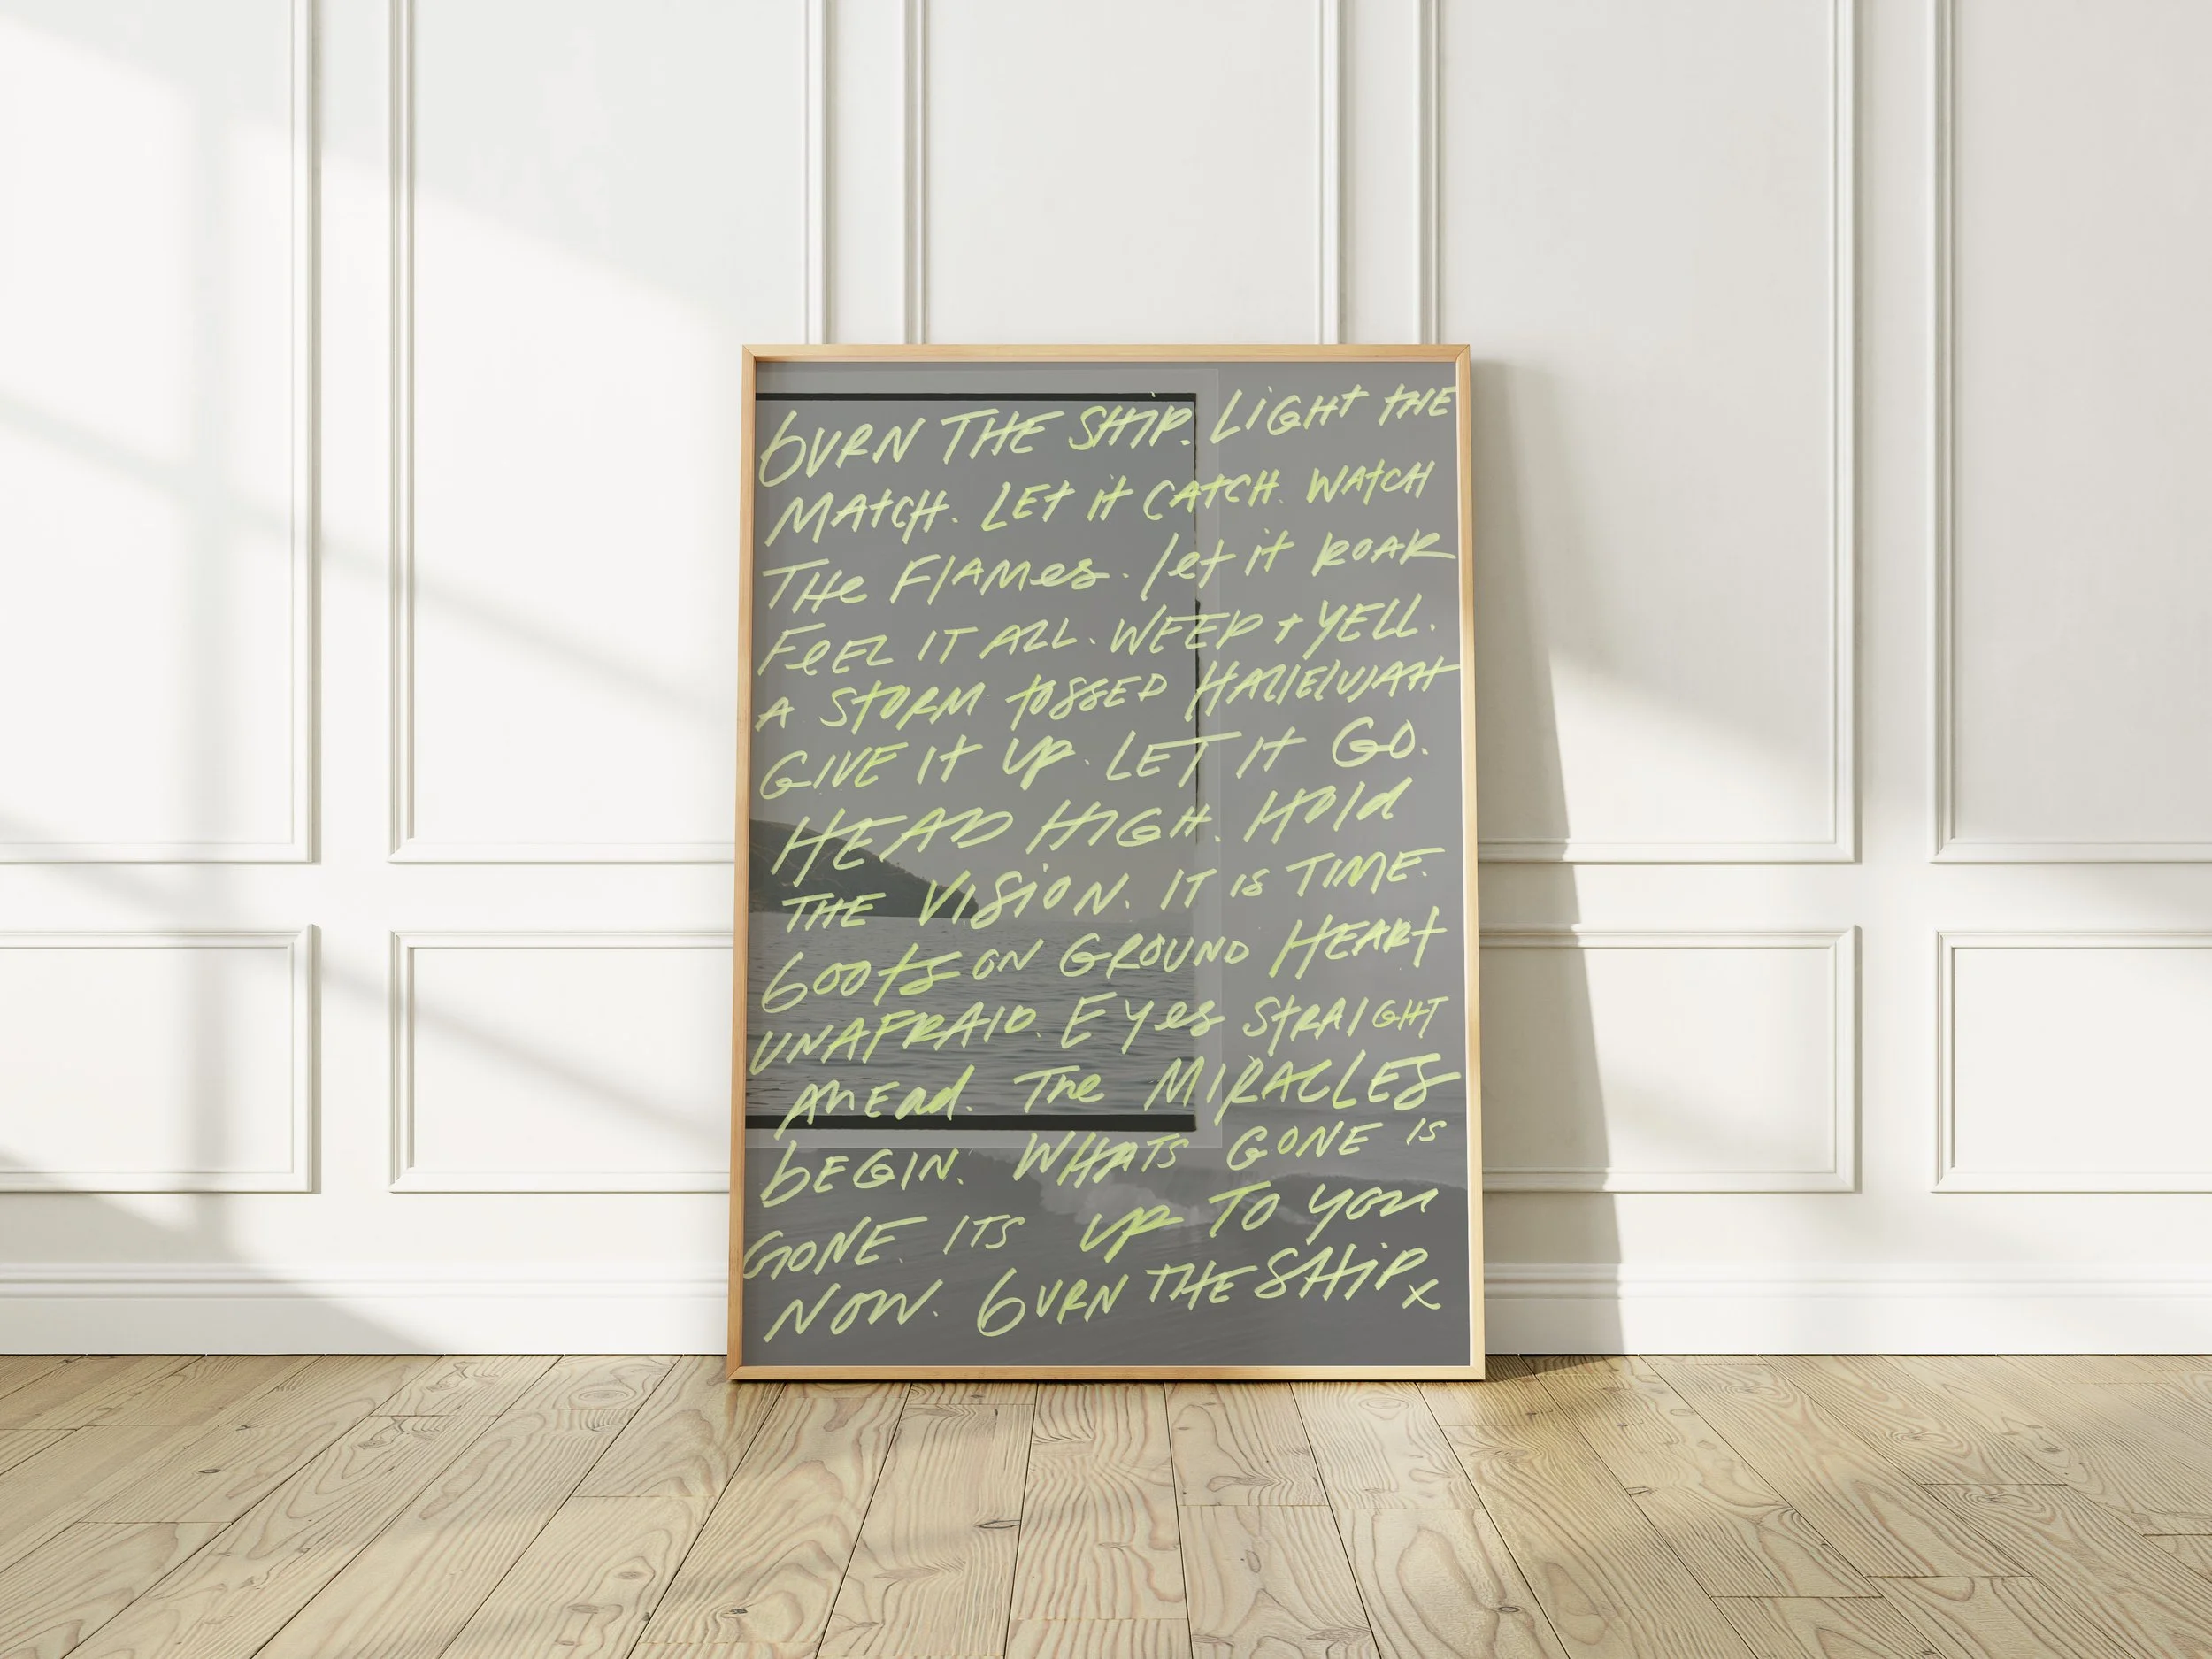 bURN THE SHIP. LiGHt tHE
MAtCH. LEt it CAtCH. WAtCH
THe FlAMes. let it ROAR
FeEL IT ALL. WEEP + YELL.
A StORM tOSSED HAllElUJAH
GIVE It UP. LET It GO.
HEAD HIGH. HOld
THE VISiON. IT is TIME.
bootS ON GROUND HEARt
UNAFRAID. EYes StRAIGHT
AhEad. The MIRACLES
bEGIN. WHAtS GONE IS
GONE. ITS UP TO you
NOW. bURN THE SHiP. x